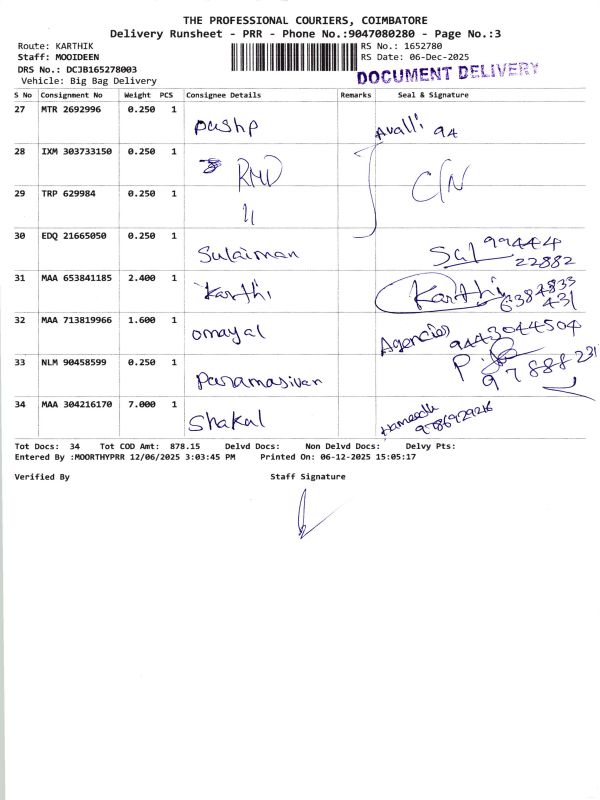 THE PROFESSIONAL COURIERS, COIMBATORE
Delivery Runsheet - PRR - Phone No.:9047080280 - Page No.:3
Route: KARTHIK RS No.: 1652780
Staff: MOOIDEEN RS Date: 06-Dec-2025
DRS No.: DCJB165278003 DOCUMENT DELIVERY
Vehicle: Big Bag Delivery
S No Consignment No Weight PCS Consignee Details Remarks Seal & Signature
27 MTR 2692996 0.250 1 pushp Avalli 94
28 IXM 303733150 0.250 1 RMD C/N
29 TRP 629984 0.250 1 11
30 EDQ 21665050 0.250 1 Sulaiman Sul 99444 22882
31 MAA 653841185 2.400 1 Karthi Karthi 6384833 431
32 MAA 713819966 1.600 1 omayal Agencies 9443044504
33 NLM 90458599 0.250 1 Paramasivan 97888 231
34 MAA 304216170 7.000 1 Shakal Hameedh 9786929216
Tot Docs: 34 Tot COD Amt: 878.15 Delvd Docs: Non Delvd Docs: Delvy Pts:
Entered By :MOORTHYPRR 12/06/2025 3:03:45 PM Printed On: 06-12-2025 15:05:17
Verified By Staff Signature